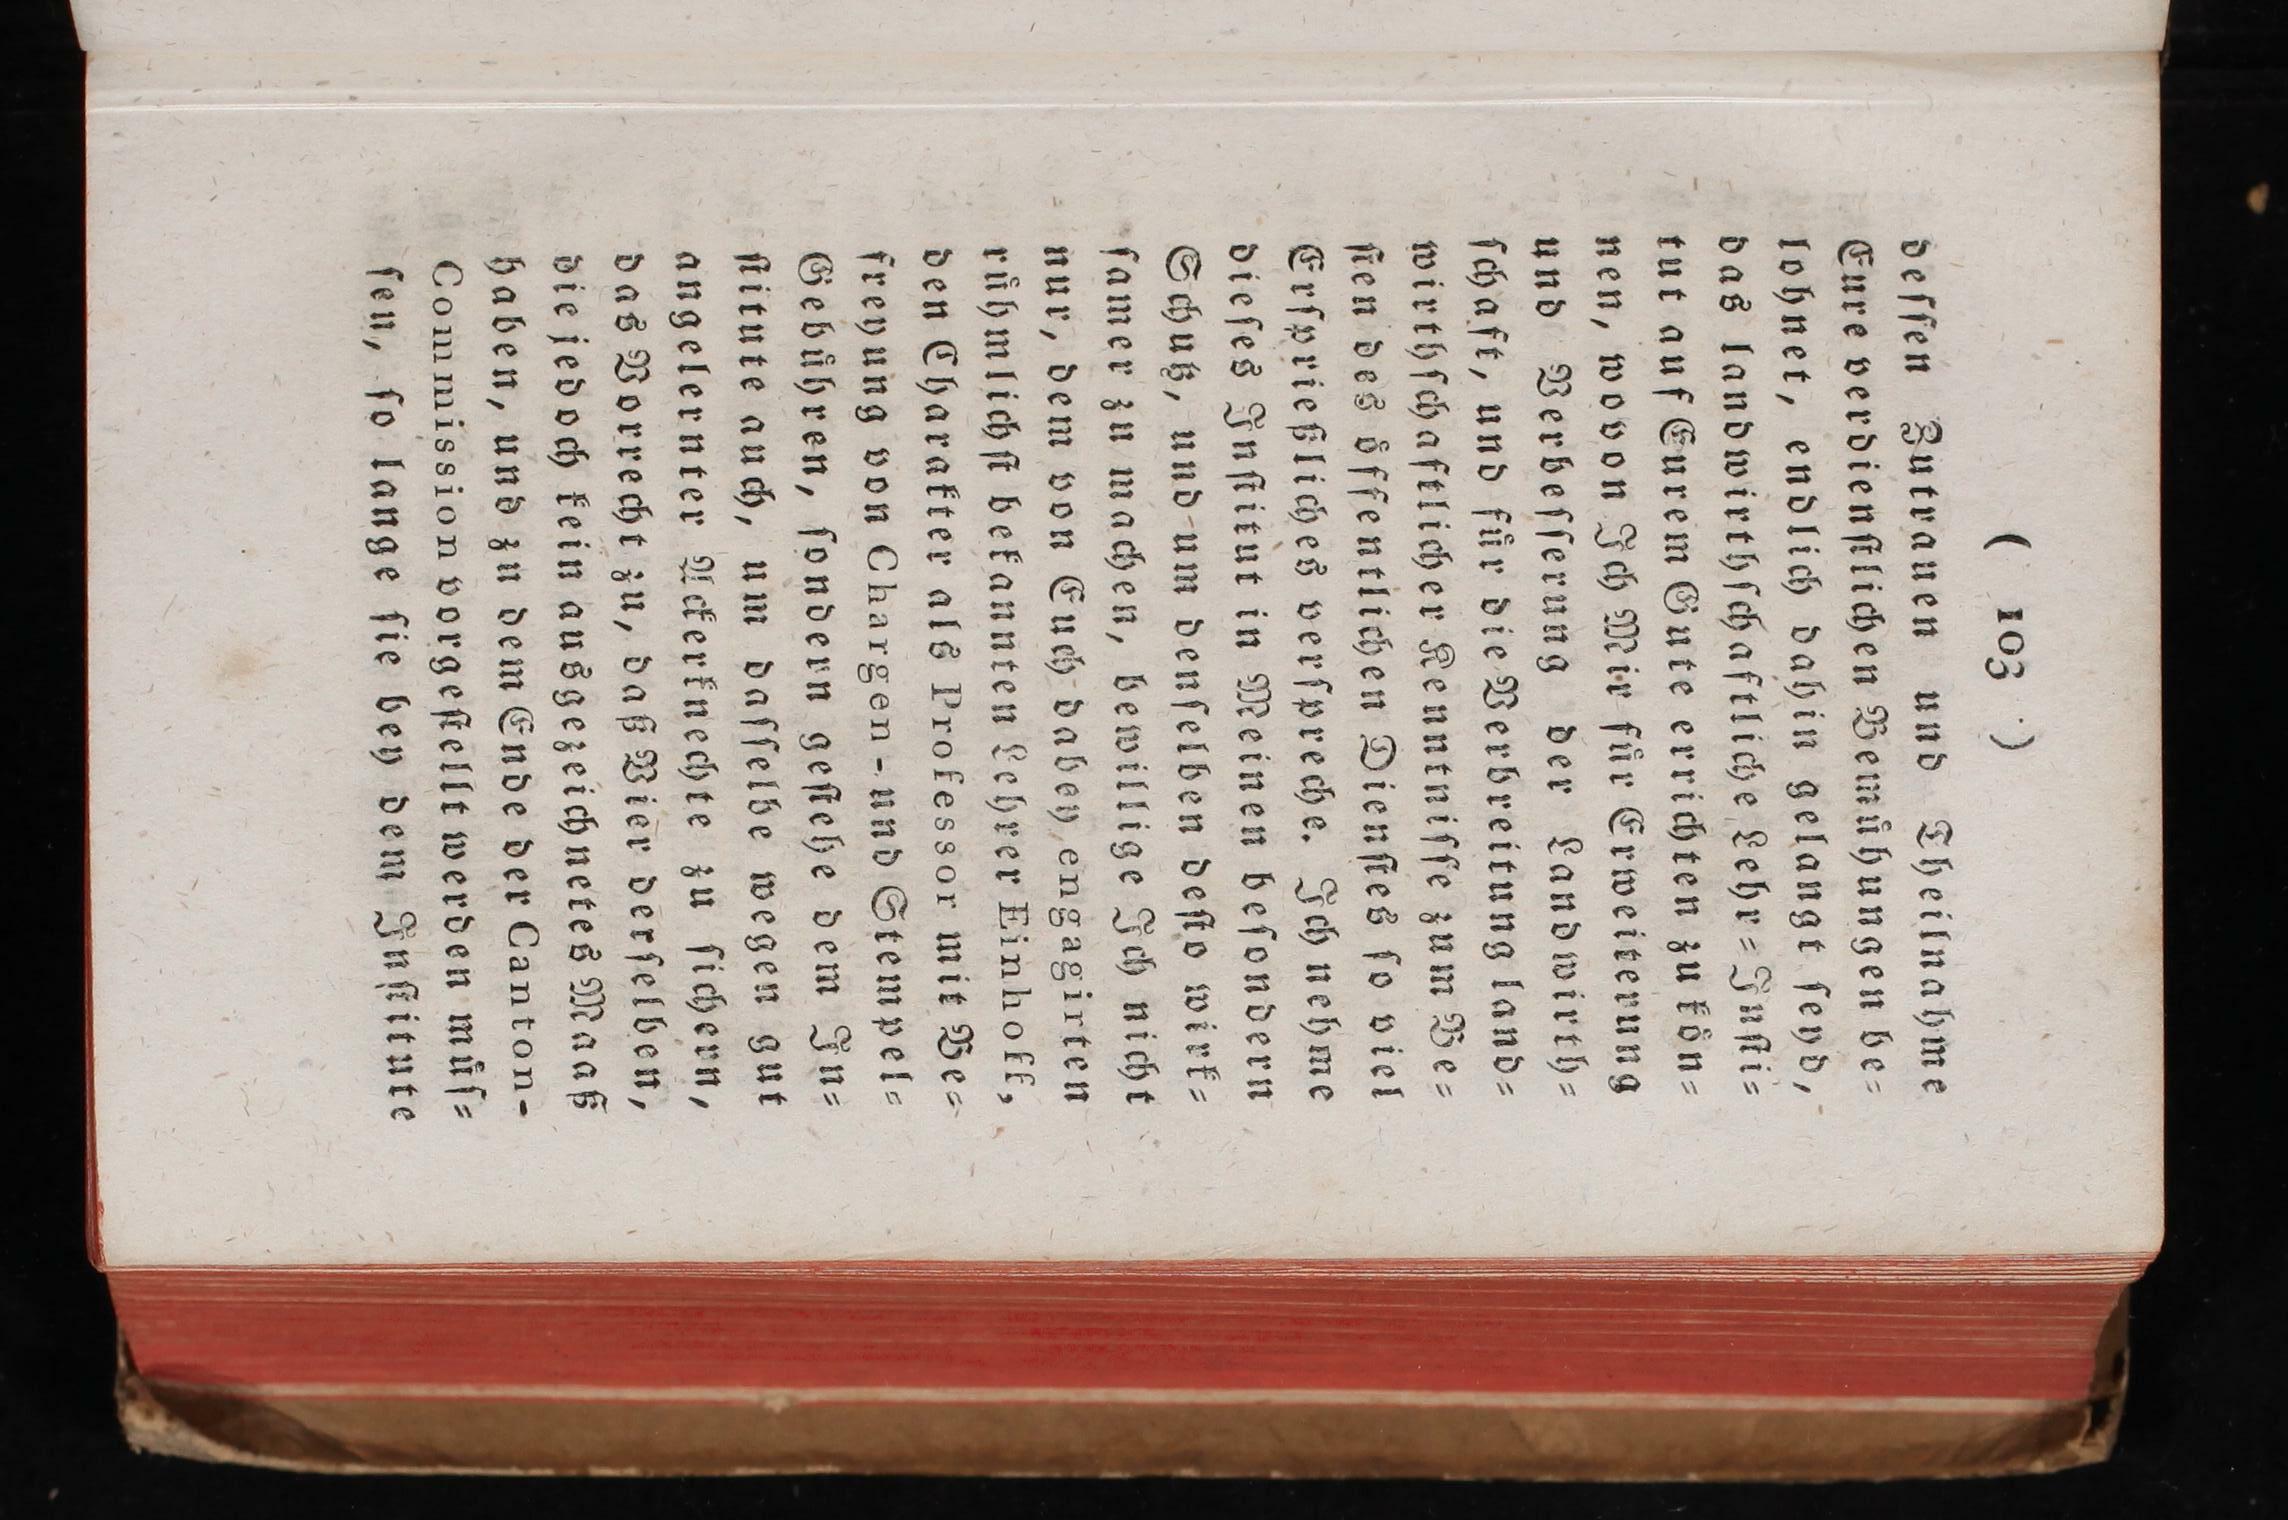 ( 103 )
dessen Zutrauen und Theilnahme
Eure verdienstlichen Bemühungen be=
lohnet, endlich dahin gelangt seyd,
das landwirthschaftliche Lehr=Insti=
tut auf Eurem Gute errichten zu kön=
nen, wovon Ich Mir für Erweiterung
und Verbesserung der Landwirth=
schaft, und für die Verbreitung land=
wirthschaftlicher Kenntnisse zum Be=
sten des öffentlichen Dienstes so viel
Ersprießliches verspreche. Ich nehme
dieses Institut in Meinen besondern
Schutz, und um denselben desto wirk=
samer zu machen, bewillige Ich nicht
nur, dem von Euch dabey engagirten
rühmlichst bekannten Lehrer Einhoff,
den Charakter als Professor mit Be=
freyung von Chargen- und Stempel=
Gebühren, sondern gestehe dem In=
stitute auch, um dasselbe wegen gut
angelernter Ackerknechte zu sichern,
das Vorrecht zu, daß Vier derselben,
die jedoch kein ausgezeichnetes Maaß
haben, und zu dem Ende der Canton-
Commission vorgestellt werden müs=
sen, so lange sie bey dem Institute